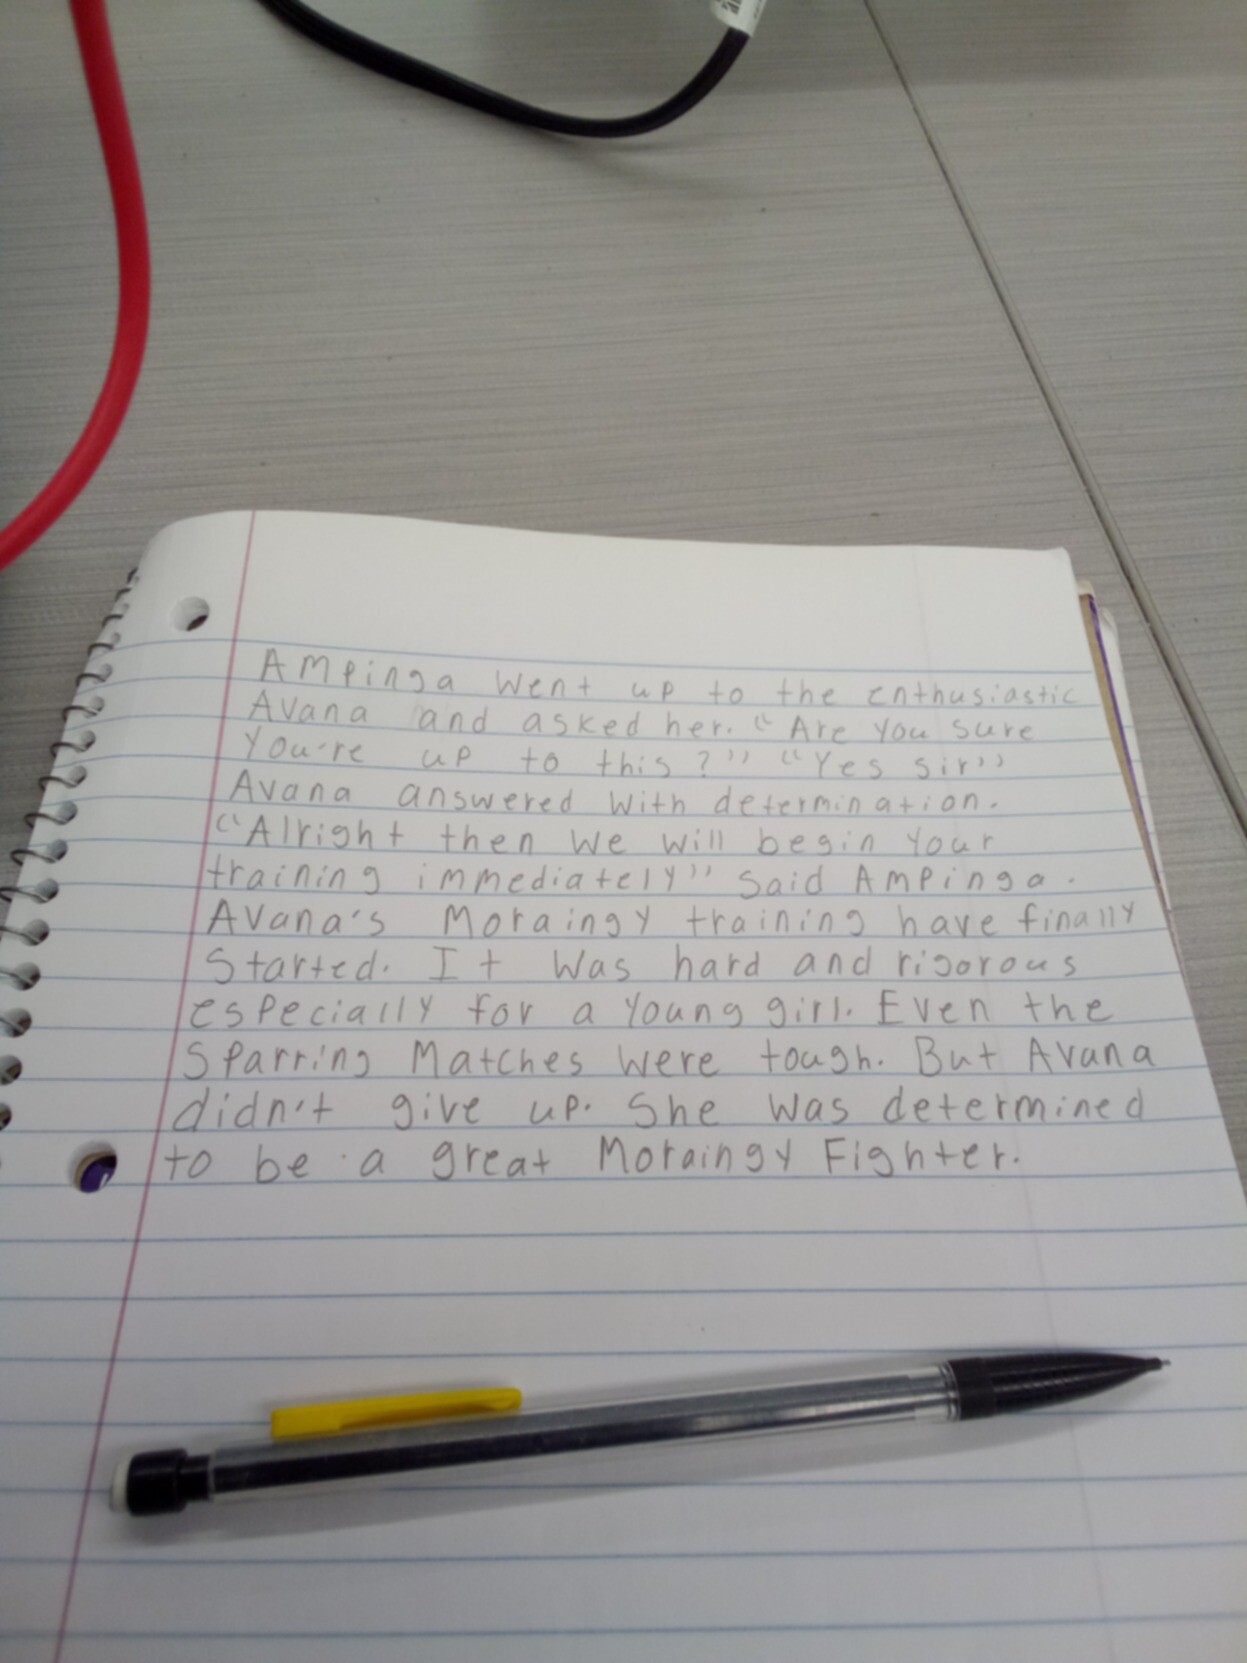 Ampinga went up to the enthusiastic
Avana and asked her. "Are you sure
you're up to this?" "Yes sir"
Avana answered with determination.
"Alright then we will begin your
training immediately" said Ampinga.
Avana's Moraingy training have finally
started. It was hard and rigorous
especially for a young girl. Even the
sparring matches were tough. But Avana
didn't give up. She was determined
to be a great Moraingy Fighter.